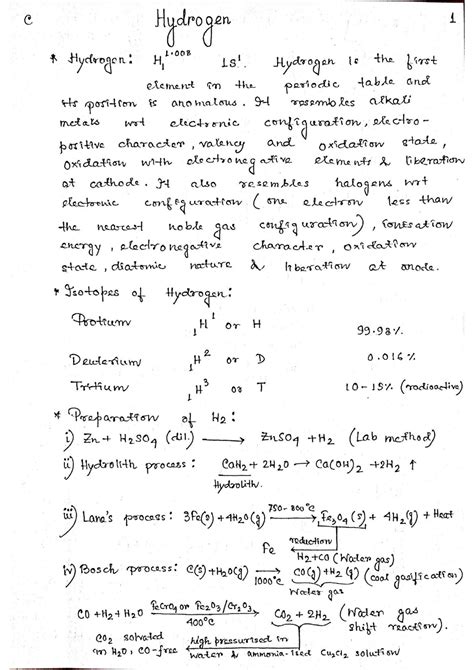 C Hydrogen 1
* Hydrogen: H₁^1.008 1S¹. Hydrogen is the first
element in the periodic table and
its position is anomalous. It resembles alkali
metals wrt electronic configuration, electro-
positive character, valency and oxidation state,
oxidation with electronegative elements & liberation
at cathode. It also resembles halogens wrt
electronic configuration (one electron less than
the nearest noble gas configuration), ionisation
energy, electronegative character, oxidation
state, diatomic nature & liberation at anode.
* Isotopes of Hydrogen:
Protium ₁H¹ or H 99.98%.
Deuterium ₁H² or D 0.016%
Tritium ₁H³ or T 10-15% (radioactive)
* Preparation of H₂:
i) Zn + H₂SO₄ (dil.) → ZnSO₄ + H₂ (Lab method)
ii) Hydrolith process: CaH₂ + 2H₂O → Ca(OH)₂ + 2H₂ ↑
Hydrolith.
iii) Lane's process: 3Fe(s) + 4H₂O(g) 750-800°C → Fe₃O₄(s) + 4H₂(g) + Heat
Fe ← reduction
H₂+CO (Water gas)
iv) Bosch process: C(s) + H₂O(g) → 1000°C CO(g) + H₂(g) (coal gasification)
Water gas
CO + H₂ + H₂O FeCrO₄ or Fe₂O₃/Cr₂O₃ → 400°C CO₂ + 2H₂ (Water gas
shift reaction).
CO₂ solvated ← high pressurised in
in H₂O, CO-free water & ammonia-ised Cu₂Cl₂ solution